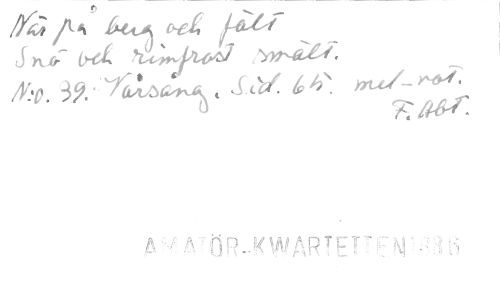 När på berg och fält
Snö och rimfrost smält.
N:o. 39. Vårsång. Sid. 65. mel-rot.
F. Abt.
AMATÖR-KWARTETTEN 1886